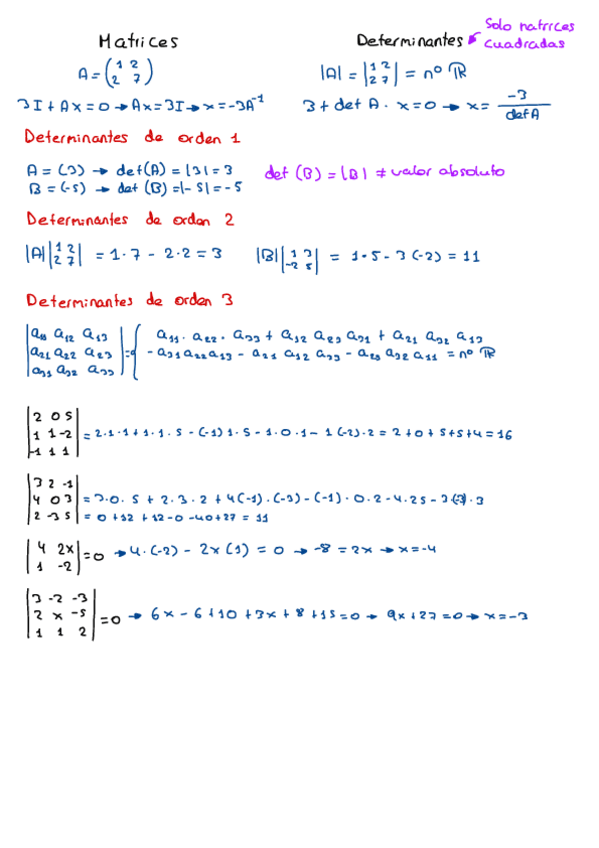 Matrices
Determinantes
Solo matrices
cuadradas
A = (1 2
2 7)
|A| = |1 2
2 7| = nº ℝ
3I + Ax = 0 → Ax = 3I → x = -3A⁻¹
3 + det A · x = 0 → x = -3/det A
Determinantes de orden 1
A = (3) → det(A) = |3| = 3
B = (-5) → det (B) = |-5| = -5
det (B) = |B| ≠ valor absoluto
Determinantes de orden 2
|A| |1 2
2 7| = 1·7 - 2·2 = 3
|B| |1 3
-2 5| = 1·5 - 3(-2) = 11
Determinantes de orden 3
|a11 a12 a13
a21 a22 a23
a31 a32 a33| = { a11 · a22 · a33 + a12 a23 a31 + a21 a32 a13
- a31 a22 a13 - a21 a12 a33 - a23 a32 a11 = nº ℝ
|2 0 5
1 1 -2
-1 1 1| = 2·1·1 + 1·1·5 - (-1)1·5 - 1·0·1 - 1(-2)·2 = 2+0+5+5+4 = 16
|3 2 -1
4 0 3
2 -3 5| = 3·0·5 + 2·3·2 + 4(-1)·(-3) - (-1)·0·2 - 4·2·5 - 3(-3)·3
= 0 + 12 + 12 - 0 - 40 + 27 = 11
|4 2x
1 -2| = 0 → 4·(-2) - 2x(1) = 0 → -8 = 2x → x = -4
|3 -2 -3
2 x -5
1 1 2| = 0 → 6x - 6 + 10 + 3x + 8 + 15 = 0 → 9x + 27 = 0 → x = -3